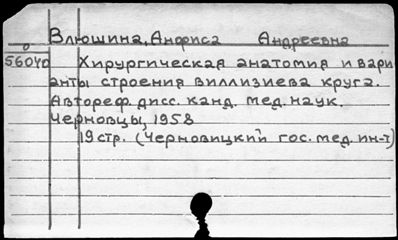 Влюшина, Анфиса Андреевна
56040 Хирургическая анатомия и вари
анты строения виллизиева круга.
Автореф. дисс. канд. мед. наук.
Черновцы, 1958
19 стр. (Черновицкий гос. мед. ин-т)